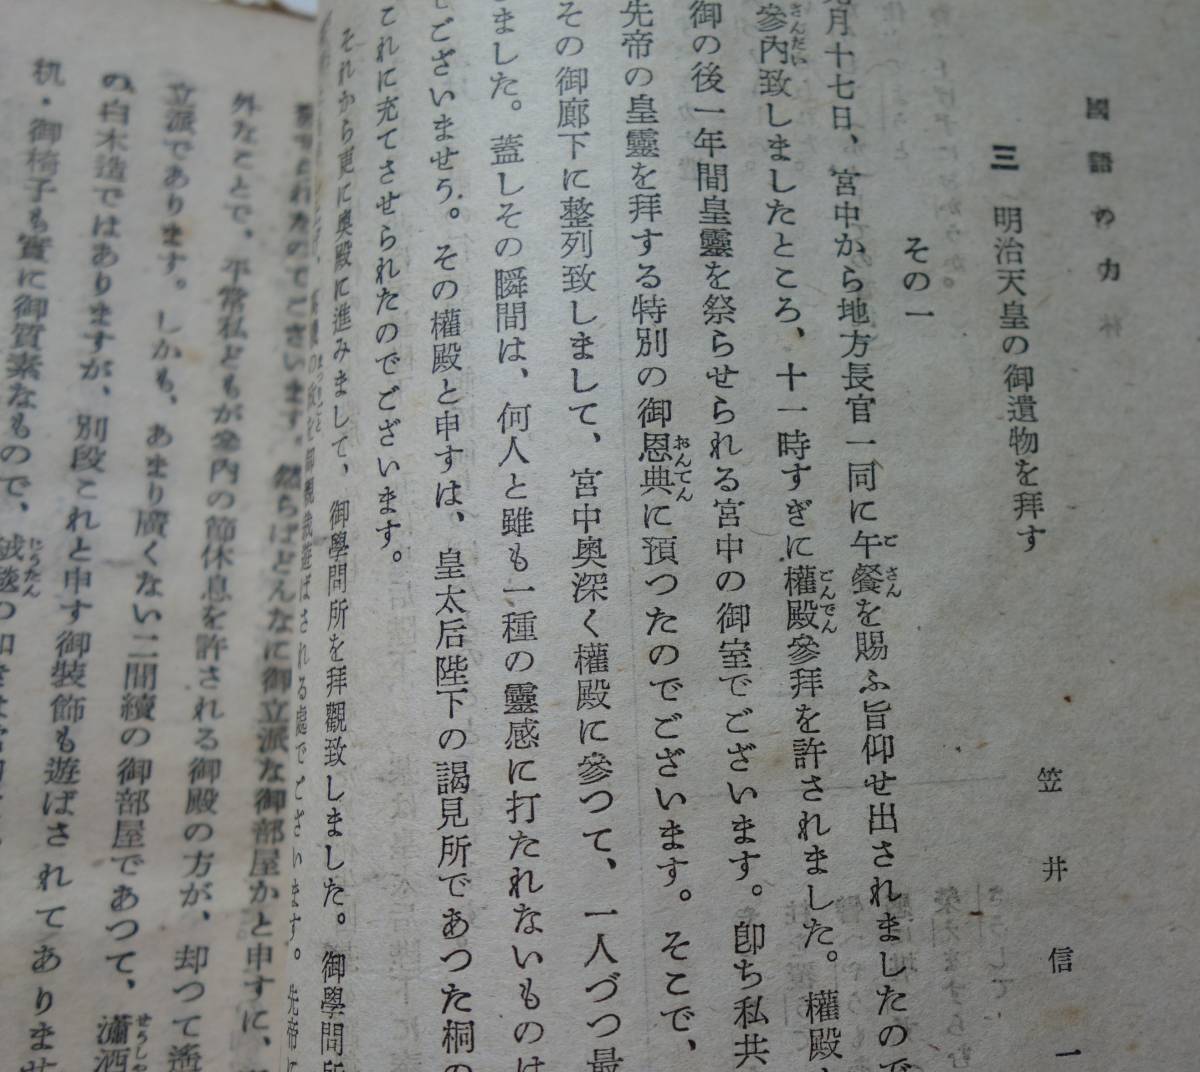 國語の力
三　明治天皇の御遺物を拜す
笠井信一
その一
月十七日、宮中から地方長官一同に午餐を賜ふ旨仰せ出されましたので
參內致しましたところ、十一時すぎに權殿參拜を許されました。權殿
御の後一年間皇靈を祭らせられる宮中の御室でございます。卽ち私共
先帝の皇靈を拜する特別の御恩典に預つたのでございます。そこで、
その御廊下に整列致しまして、宮中奧深く權殿に參つて、一人づつ最
ました。蓋しその瞬間は、何人と雖も一種の靈感に打たれないものは
ございませう。その權殿と申すは、皇太后陛下の謁見所であつた桐の
これに充てさせられたのでございます。
それから更に奧殿に進みまして、御學問所を拜觀致しました。御學問所
遊ばされる處でございます。先帝に
のでございます。然らばどんなに御立派な御部屋かと申すに、
外なことで、平常私どもが參內の節休息を許される御殿の方が、却つて遙
立派であります。しかも、あまり廣くない二間續の御部屋であつて、瀟洒
の、白木造ではありますが、別段これと申す御裝飾も遊ばされてありませ
机・御椅子も實に御質素なもので、絨毯の如きは